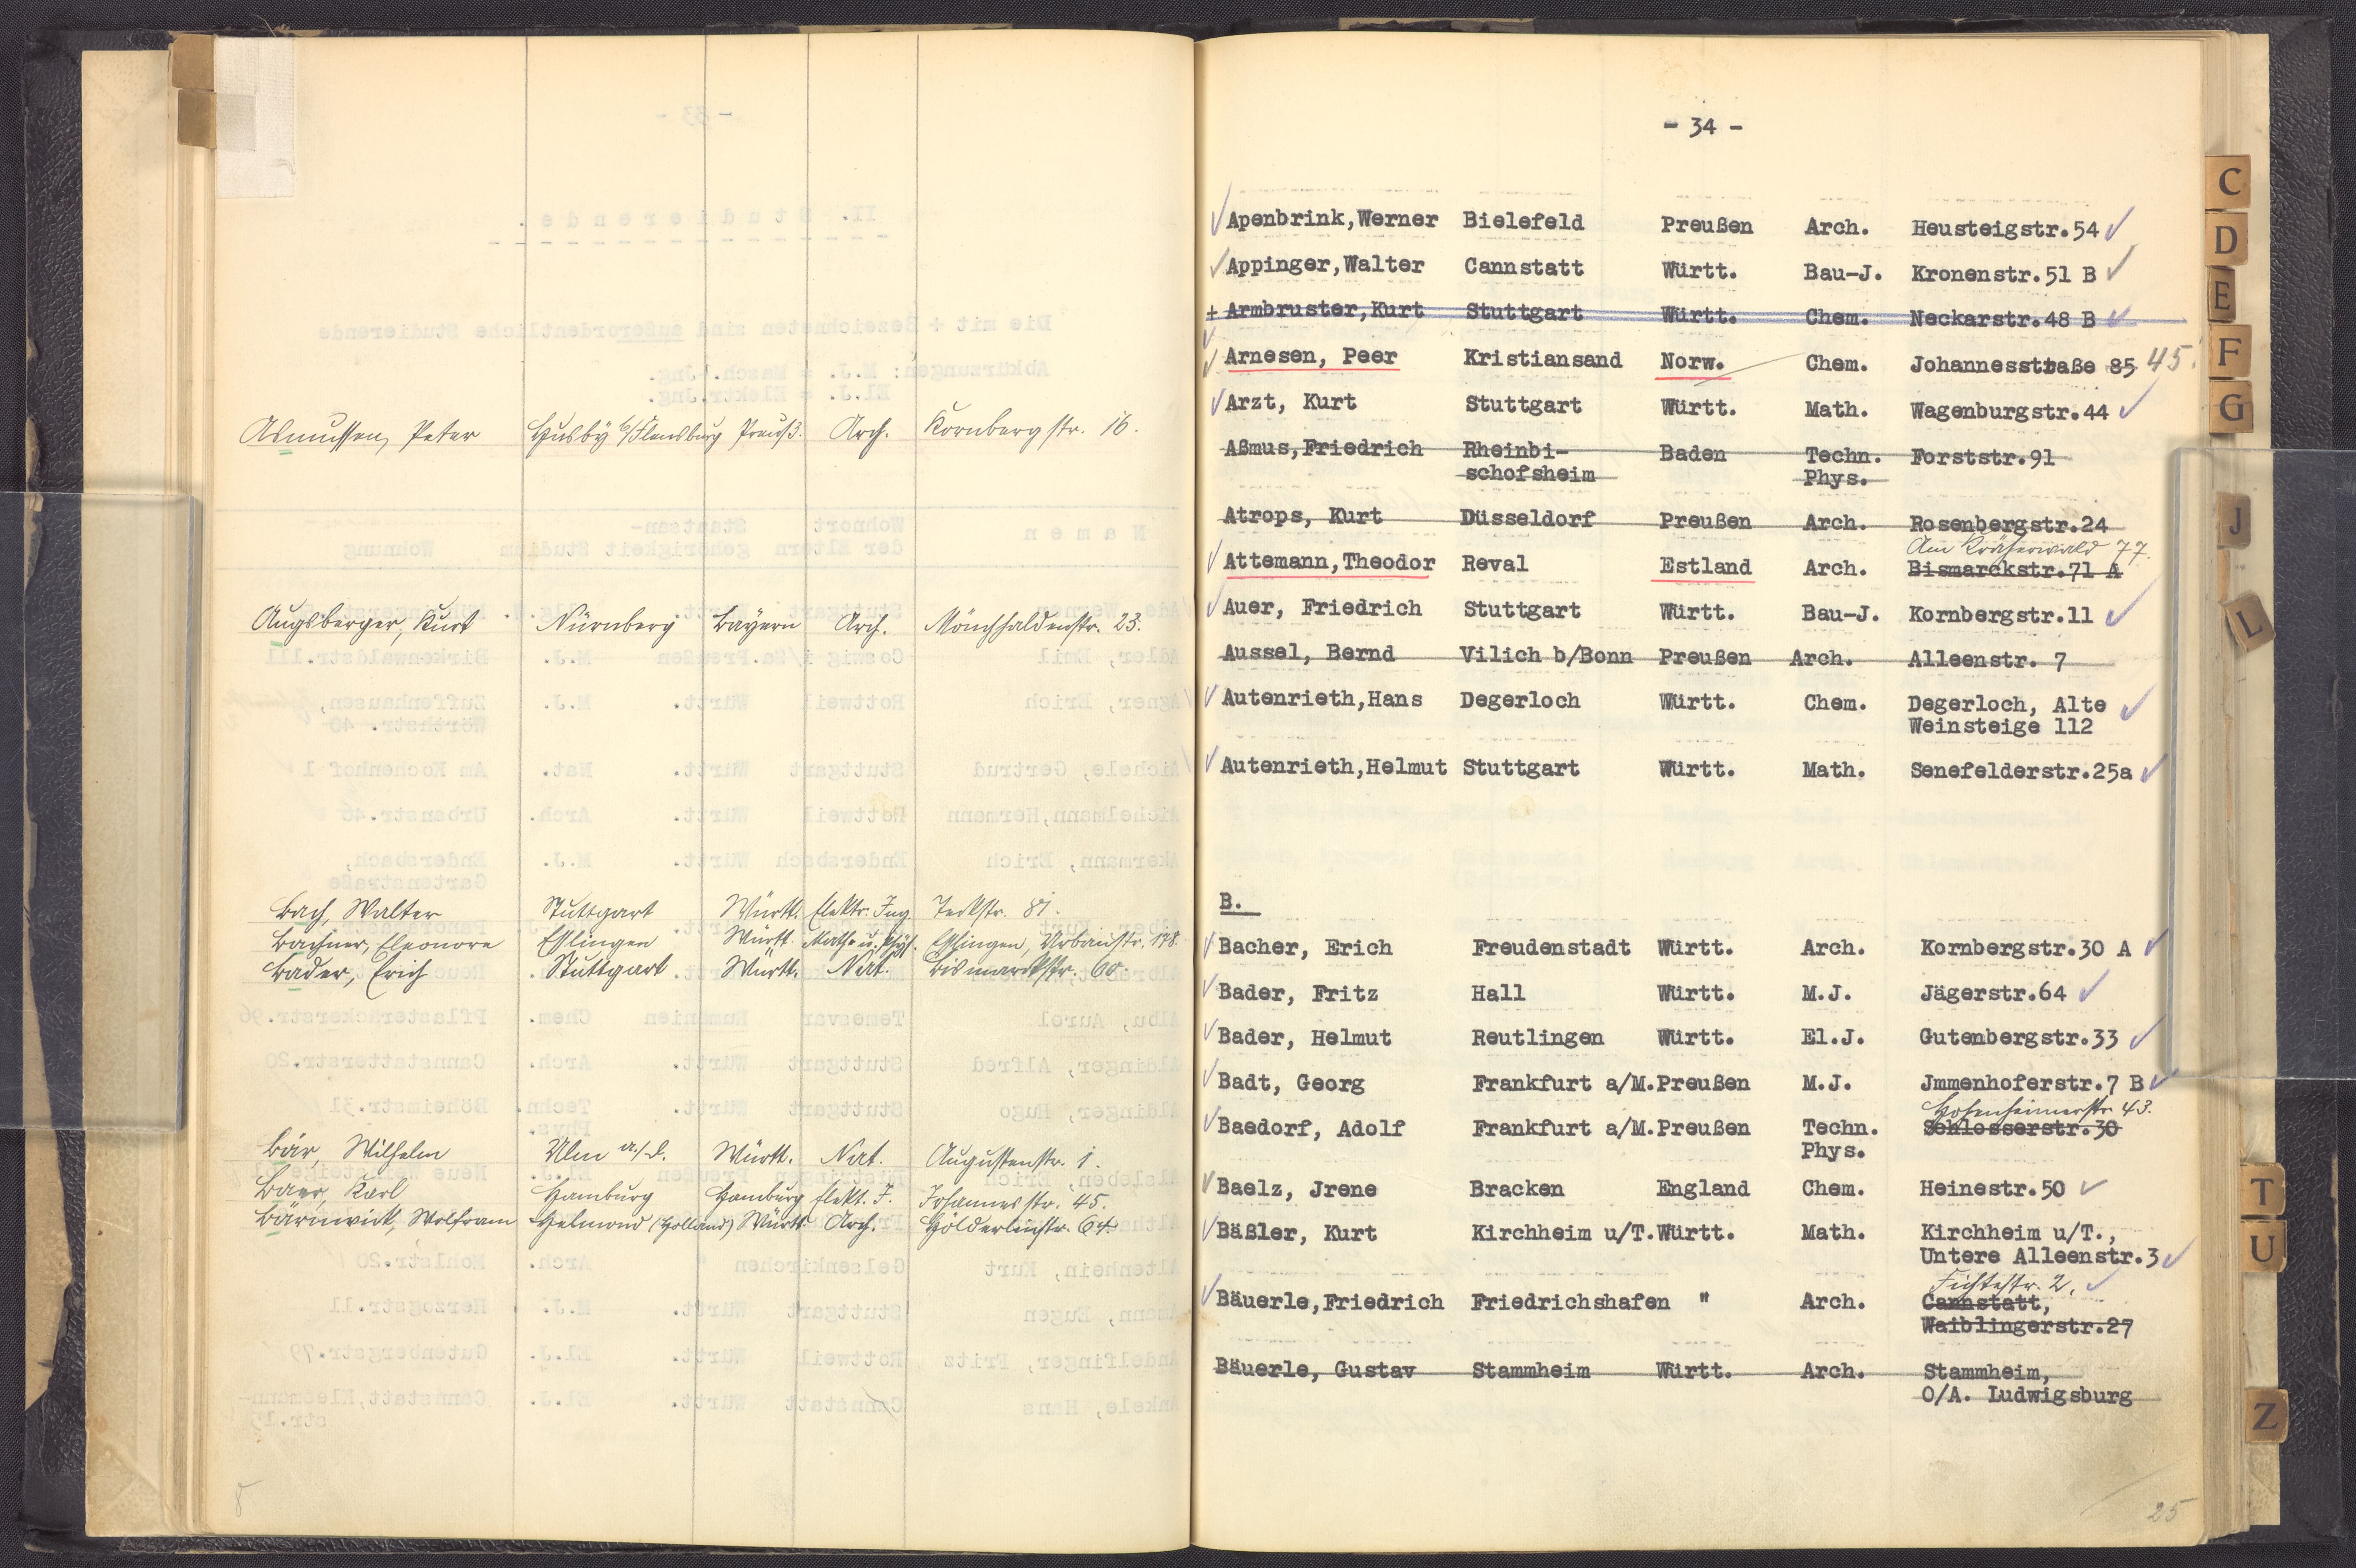 Asmussen, Peter Husby b/Flensburg Preuß. Arch. Kornbergstr. 16.
Augsberger, Kurt Nürnberg Bayern Arch. Mönchhaldenstr. 23.
Bach, Walter Stuttgart Württ. Elektr. Ing. Teckstr. 81.
Bachner, Eleonore Esslingen Württ. Math. u. Phys. Esslingen, Urbanstr. 198.
Bader, Erich Stuttgart Württ. Nat. Bismarckstr. 60.
Bär, Wilhelm Ulm a/D. Württ. Nat. Augustenstr. 1.
Baer, Karl Hamburg Hamburg Elekt. J. Johannesstr. 45.
Bärnwick, Wolfram Helmond (Holland) Württ. Arch. Hölderlinstr. 64.
- 34 -
Apenbrink,Werner Bielefeld Preußen Arch. Heusteigstr.54
Appinger,Walter Cannstatt Württ. Bau-J. Kronenstr.51 B
+ Armbruster,Kurt Stuttgart Württ. Chem. Neckarstr.48 B
Arnesen, Peer Kristiansand Norw. Chem. Johannesstraße 85 45.
Arzt, Kurt Stuttgart Württ. Math. Wagenburgstr.44
Aßmus,Friedrich Rheinbi- Baden Techn. Forststr.91
schofsheim Phys.
Atrops, Kurt Düsseldorf Preußen Arch. Rosenbergstr.24
Am Kräherwald 77.
Attemann,Theodor Reval Estland Arch. Bismarckstr.71 A
Auer, Friedrich Stuttgart Württ. Bau-J. Kornbergstr.11
Aussel, Bernd Vilich b/Bonn Preußen Arch. Alleenstr. 7
Autenrieth,Hans Degerloch Württ. Chem. Degerloch, Alte
Weinsteige 112
Autenrieth,Helmut Stuttgart Württ. Math. Senefelderstr.25a
B.
Bacher, Erich Freudenstadt Württ. Arch. Kornbergstr.30 A
Bader, Fritz Hall Württ. M.J. Jägerstr.64
Bader, Helmut Reutlingen Württ. El.J. Gutenbergstr.33
Badt, Georg Frankfurt a/M. Preußen M.J. Jmmenhoferstr.7 B
Hohenheimerstr. 43.
Baedorf, Adolf Frankfurt a/M. Preußen Techn. Schlosserstr.30
Phys.
Baelz, Jrene Bracken England Chem. Heinestr.50
Bäßler, Kurt Kirchheim u/T. Württ. Math. Kirchheim u/T.,
Untere Alleenstr.3
Fichtestr. 2.
Bäuerle,Friedrich Friedrichshafen " Arch. Cannstatt,
Waiblingerstr.27
Bäuerle, Gustav Stammheim Württ. Arch. Stammheim,
O/A. Ludwigsburg
25
C
D
E
F
G
J
L
T
U
Z